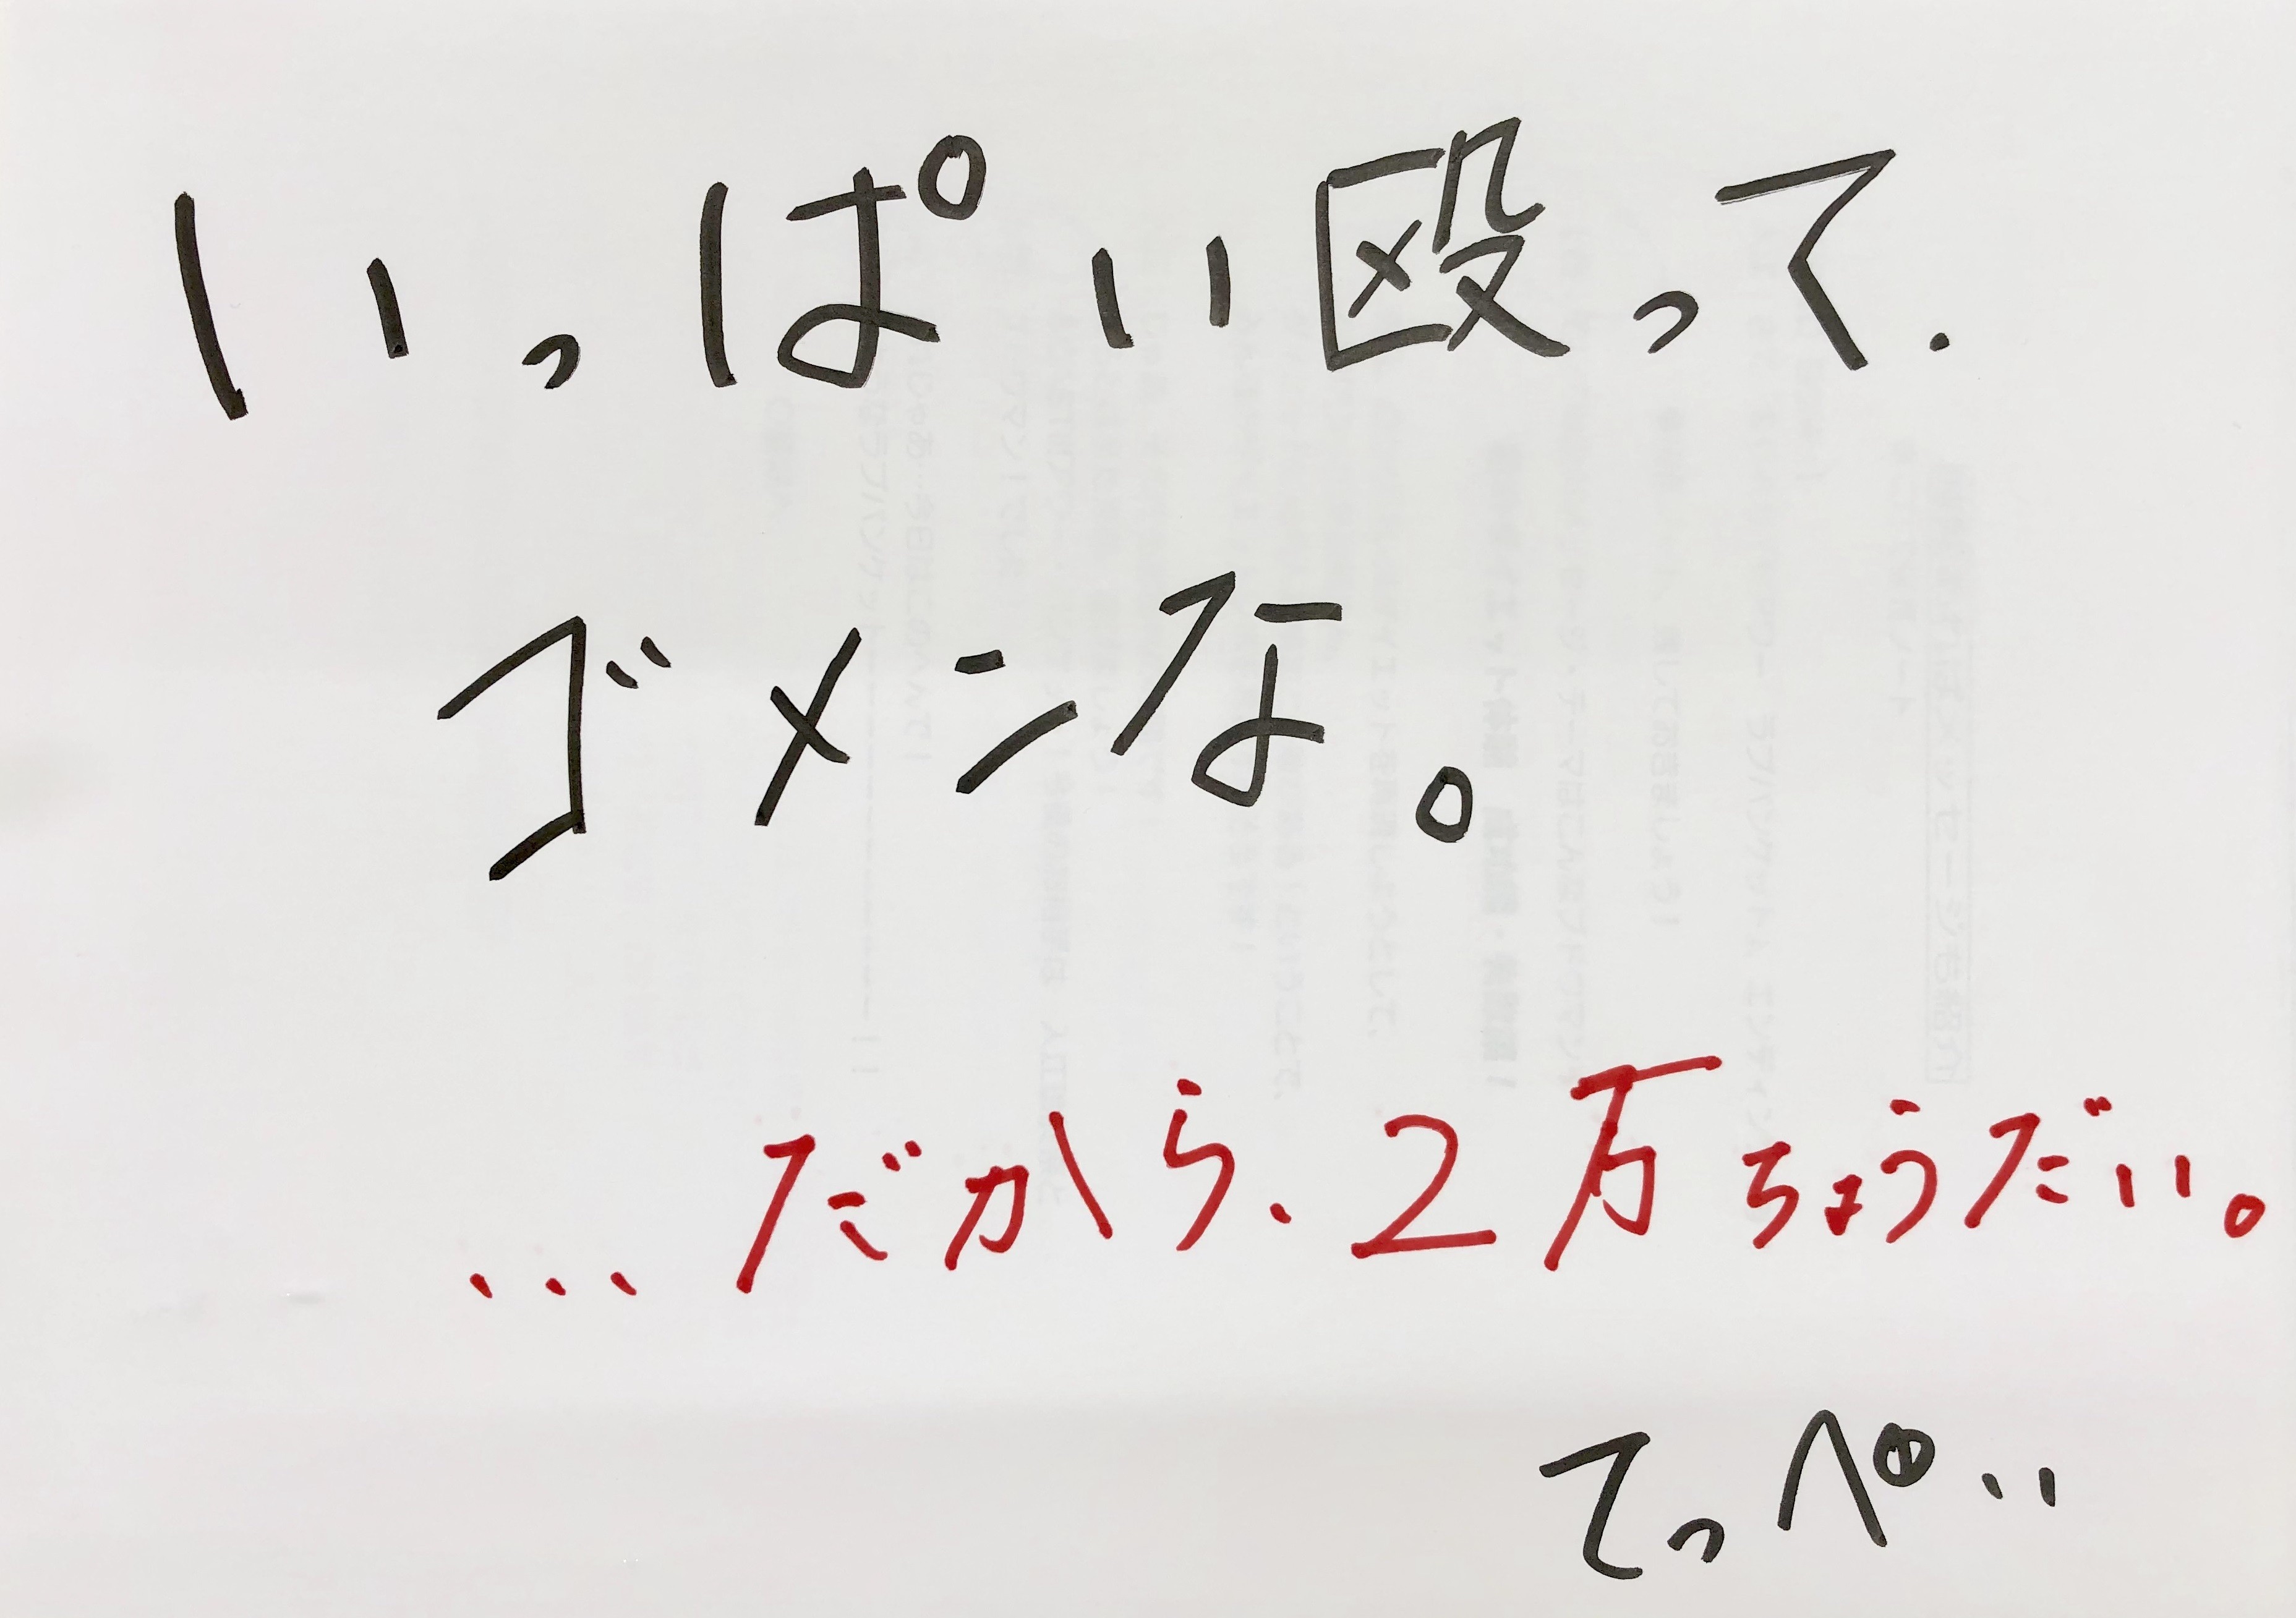 いっぱい殴って.
ゴメンな。
...だから、2万ちょうだい。
てっぺい